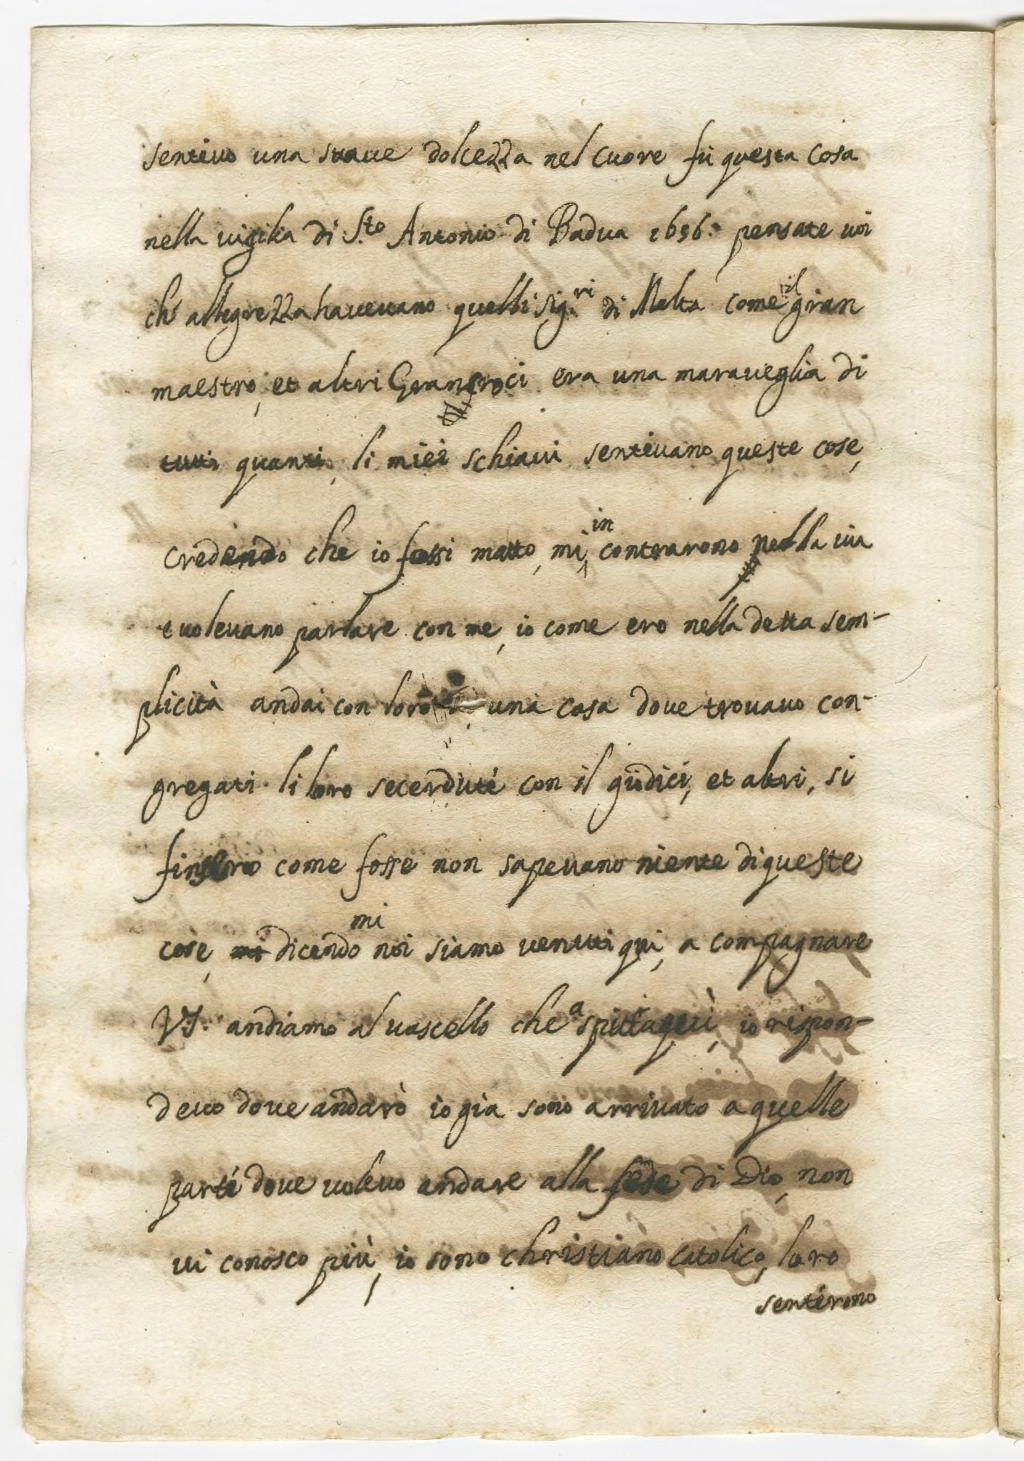 sentivo una suave dolcezza nel cuore fù questa cosa
nella vigilia di S.to Antonio di Badua 1656: pensate voi
ch' allegrezza havevano quelli sig.ri di Malta come il gran
maestro, et altri Grancroci era una maraveglia di
tutti quanti, li miei schiavi sentivano queste cose,
credendo che io fossi matto, mi incontrarono nella via
e volevano parlare con me, io come ero nella detta sem-
plicità andai con loro una casa dove trovavo con-
gregati li loro secerduté con il giudici, et altri, si
finsero come fosse non sapevano niente di queste
cose, dicendo mi noi siamo venutti qui, a compagnare
VS: andiamo al vascello che aspitta qui, io rispon-
devo dove andarò io gia sono arrivato a quelle
parté dove volevo andare alla fede di Dio, non
vi conosco più, io sono christiano catolico, loro
sentérono